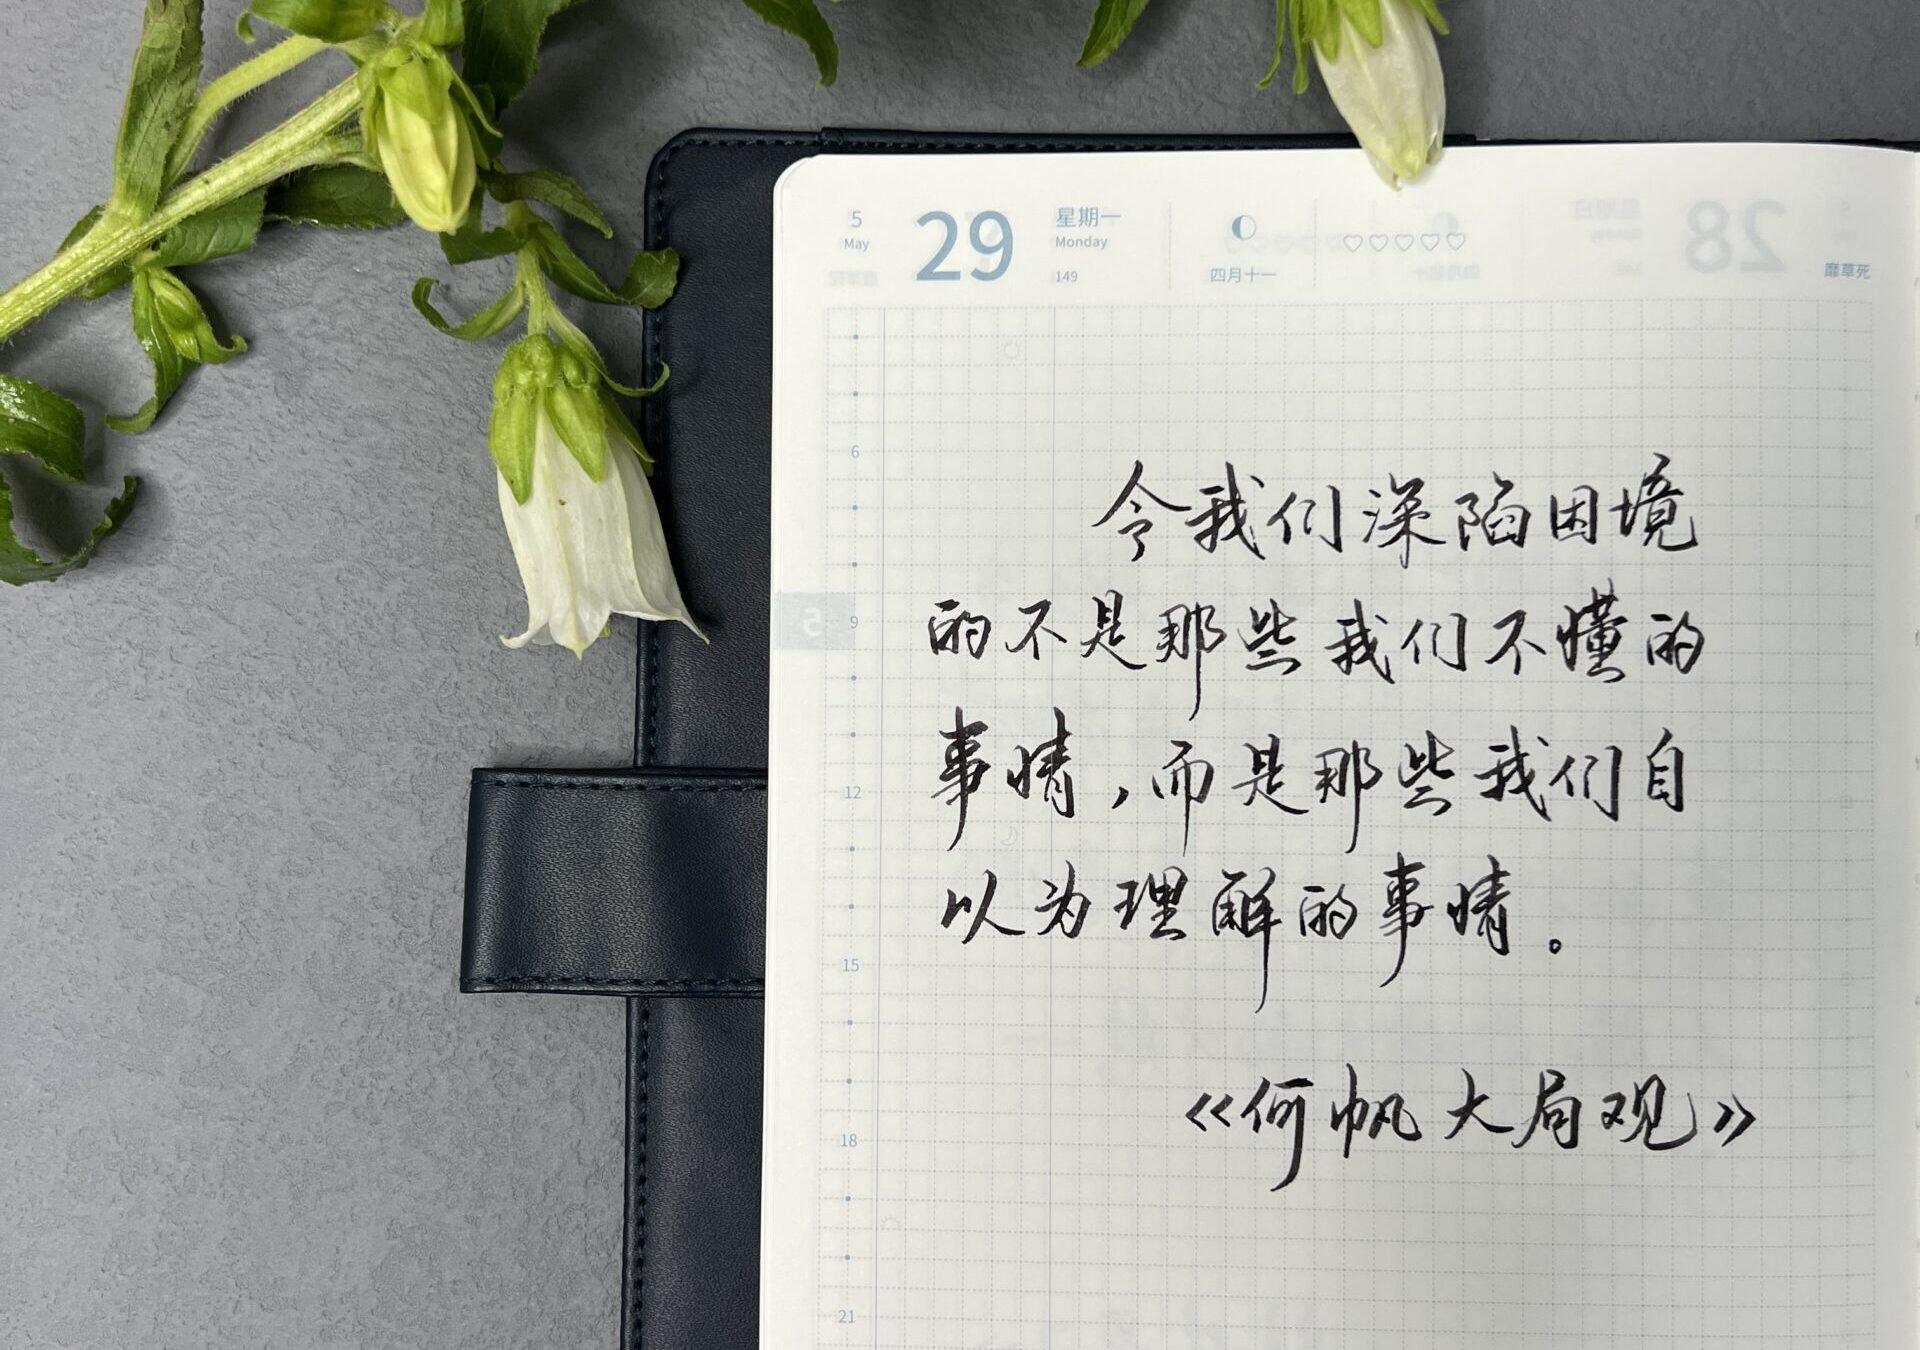 5
May
29
星期一
Monday
149
四月十一
靡草死
6
令我们深陷困境
9
的不是那些我们不懂的
事情，而是那些我们自
12
以为理解的事情。
15
《何帆大局观》
18
21